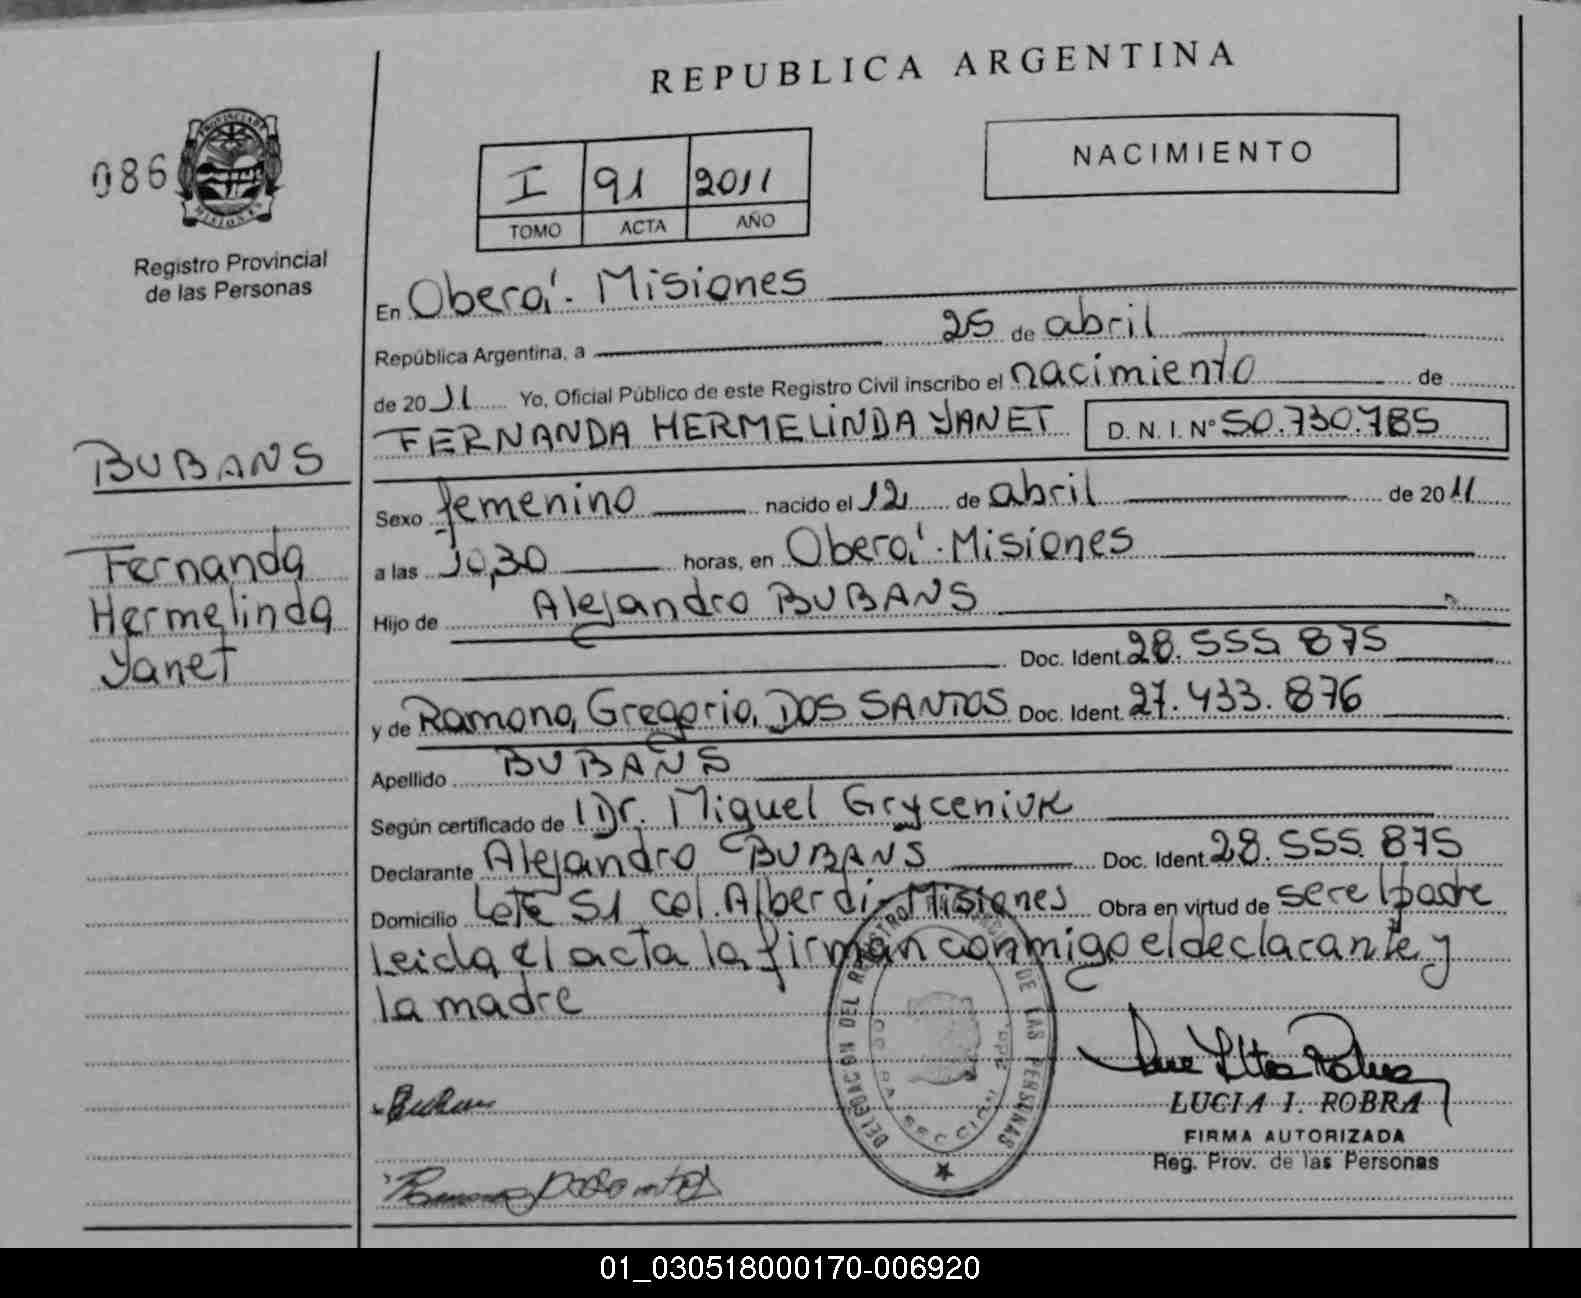 REPUBLICA ARGENTINA
086
PROVINCIA DE MISIONES
Registro Provincial
de las Personas
I 91 2011
TOMO ACTA AÑO
NACIMIENTO
En Oberá - Misiones
República Argentina, a 25 de abril
de 2011 Yo, Oficial Público de este Registro Civil inscribo el nacimiento de
FERNANDA HERMELINDA YANET D. N. I. Nº 50.730.785
BUBANS
Fernanda
Hermelinda
Yanet
Sexo femenino nacido el 12 de abril de 2011
a las 10,30 horas, en Oberá - Misiones
Hijo de Alejandro BUBANS
Doc. Ident. 28.555.875
y de Ramona, Gregoria, DOS SANTOS Doc. Ident. 27.433.876
Apellido BUBANS
Según certificado de Dr. Miguel Gryceniuk
Declarante Alejandro BUBANS Doc. Ident. 28.555.875
Domicilio Lote 51 Col. Alberdi - Misiones Obra en virtud de ser el padre
Leida el acta la firman conmigo el declarante y
la madre
DELEGACION DEL REGISTRO DE LAS PERSONAS
SECCION 2da.
LUCIA I. ROBRA
FIRMA AUTORIZADA
Reg. Prov. de las Personas
01_030518000170-006920